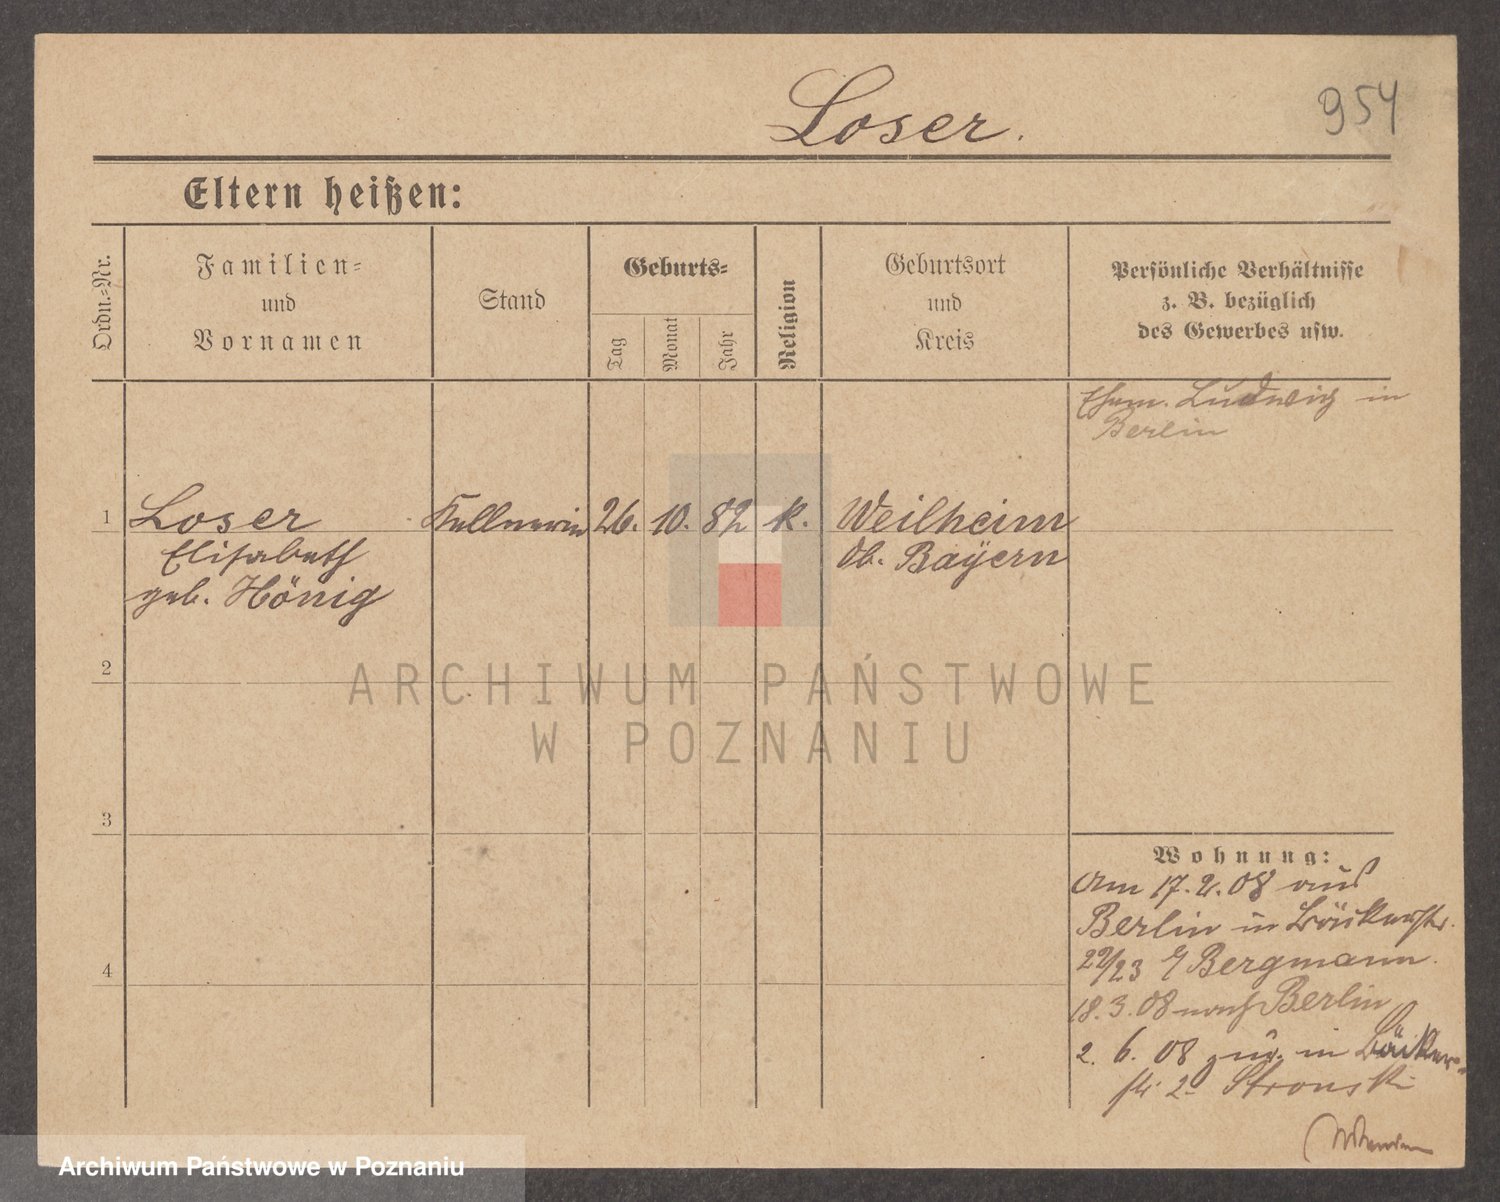 954
Loser.
Eltern heißen:
Ordn.-Nr.
Familien-
und
Vornamen
Stand
Geburts-
Tag
Monat
Jahr
Religion
Geburtsort
und
Kreis
Persönliche Verhältnisse
z. B. bezüglich
des Gewerbes usw.
Ehem. Ludwig in
Berlin
1
Loser
Elisabeth
geb. Hönig
Kellnerin
26.
10.
82
k.
Weilheim
Ob. Bayern
2
3
4
Wohnung:
Am 17.2.08 aus
Berlin in Bäckerstr.
22/23 Bergmann.
18.3.08 nach Berlin
2. 6. 08 zur. in Bäcker-
str. 2 Stronski
ARCHIWUM PAŃSTWOWE
W POZNANIU
Archiwum Państwowe w Poznaniu